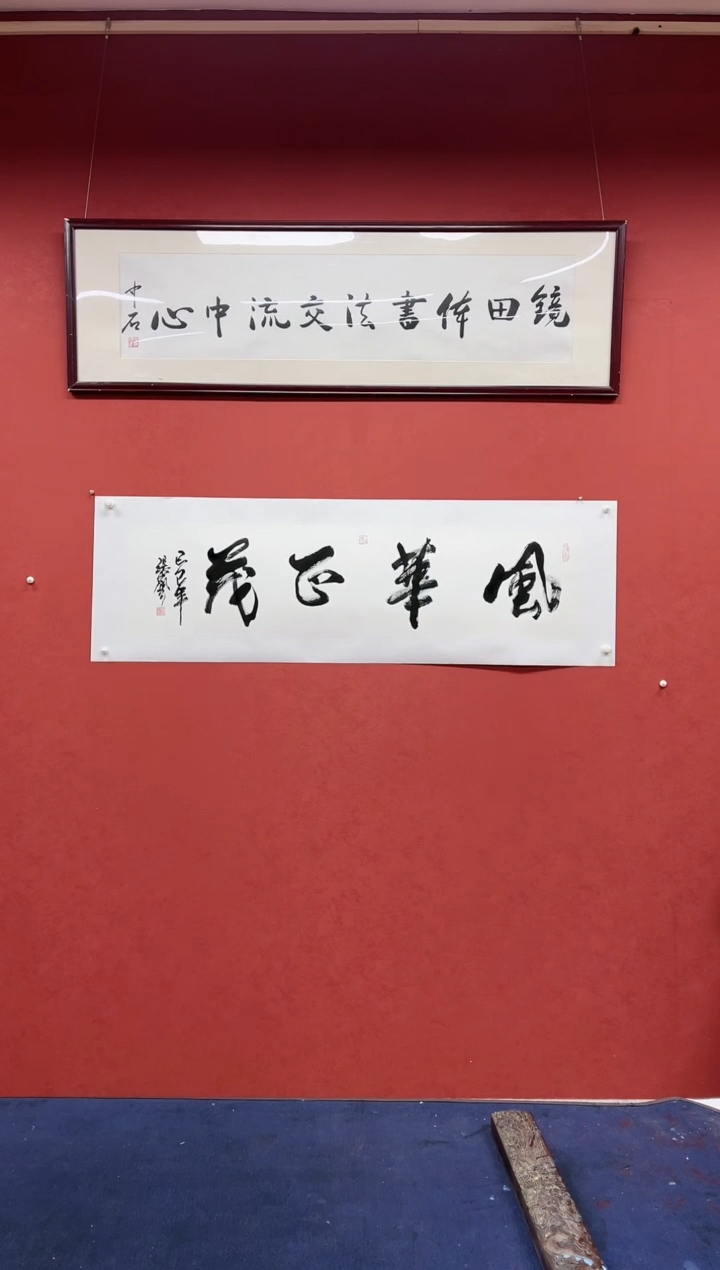 鏡田体書法交流中心
中石
風華正茂
乙巳年